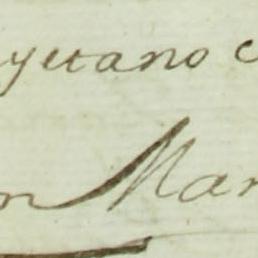 yetano c
n Mar